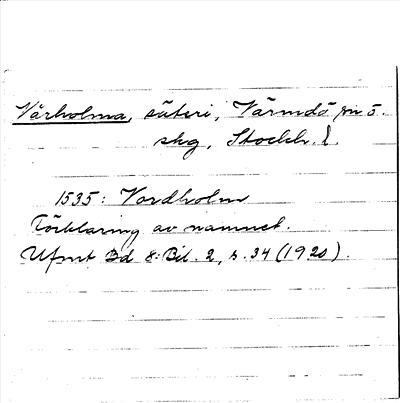 Vårholma, säteri, Värmdö sn ö.
skg, Stockh. l.
1535: Vordholm
Förklaring av namnet.
Ufmt Bd 8: Bil. 2, s. 34 (1920).